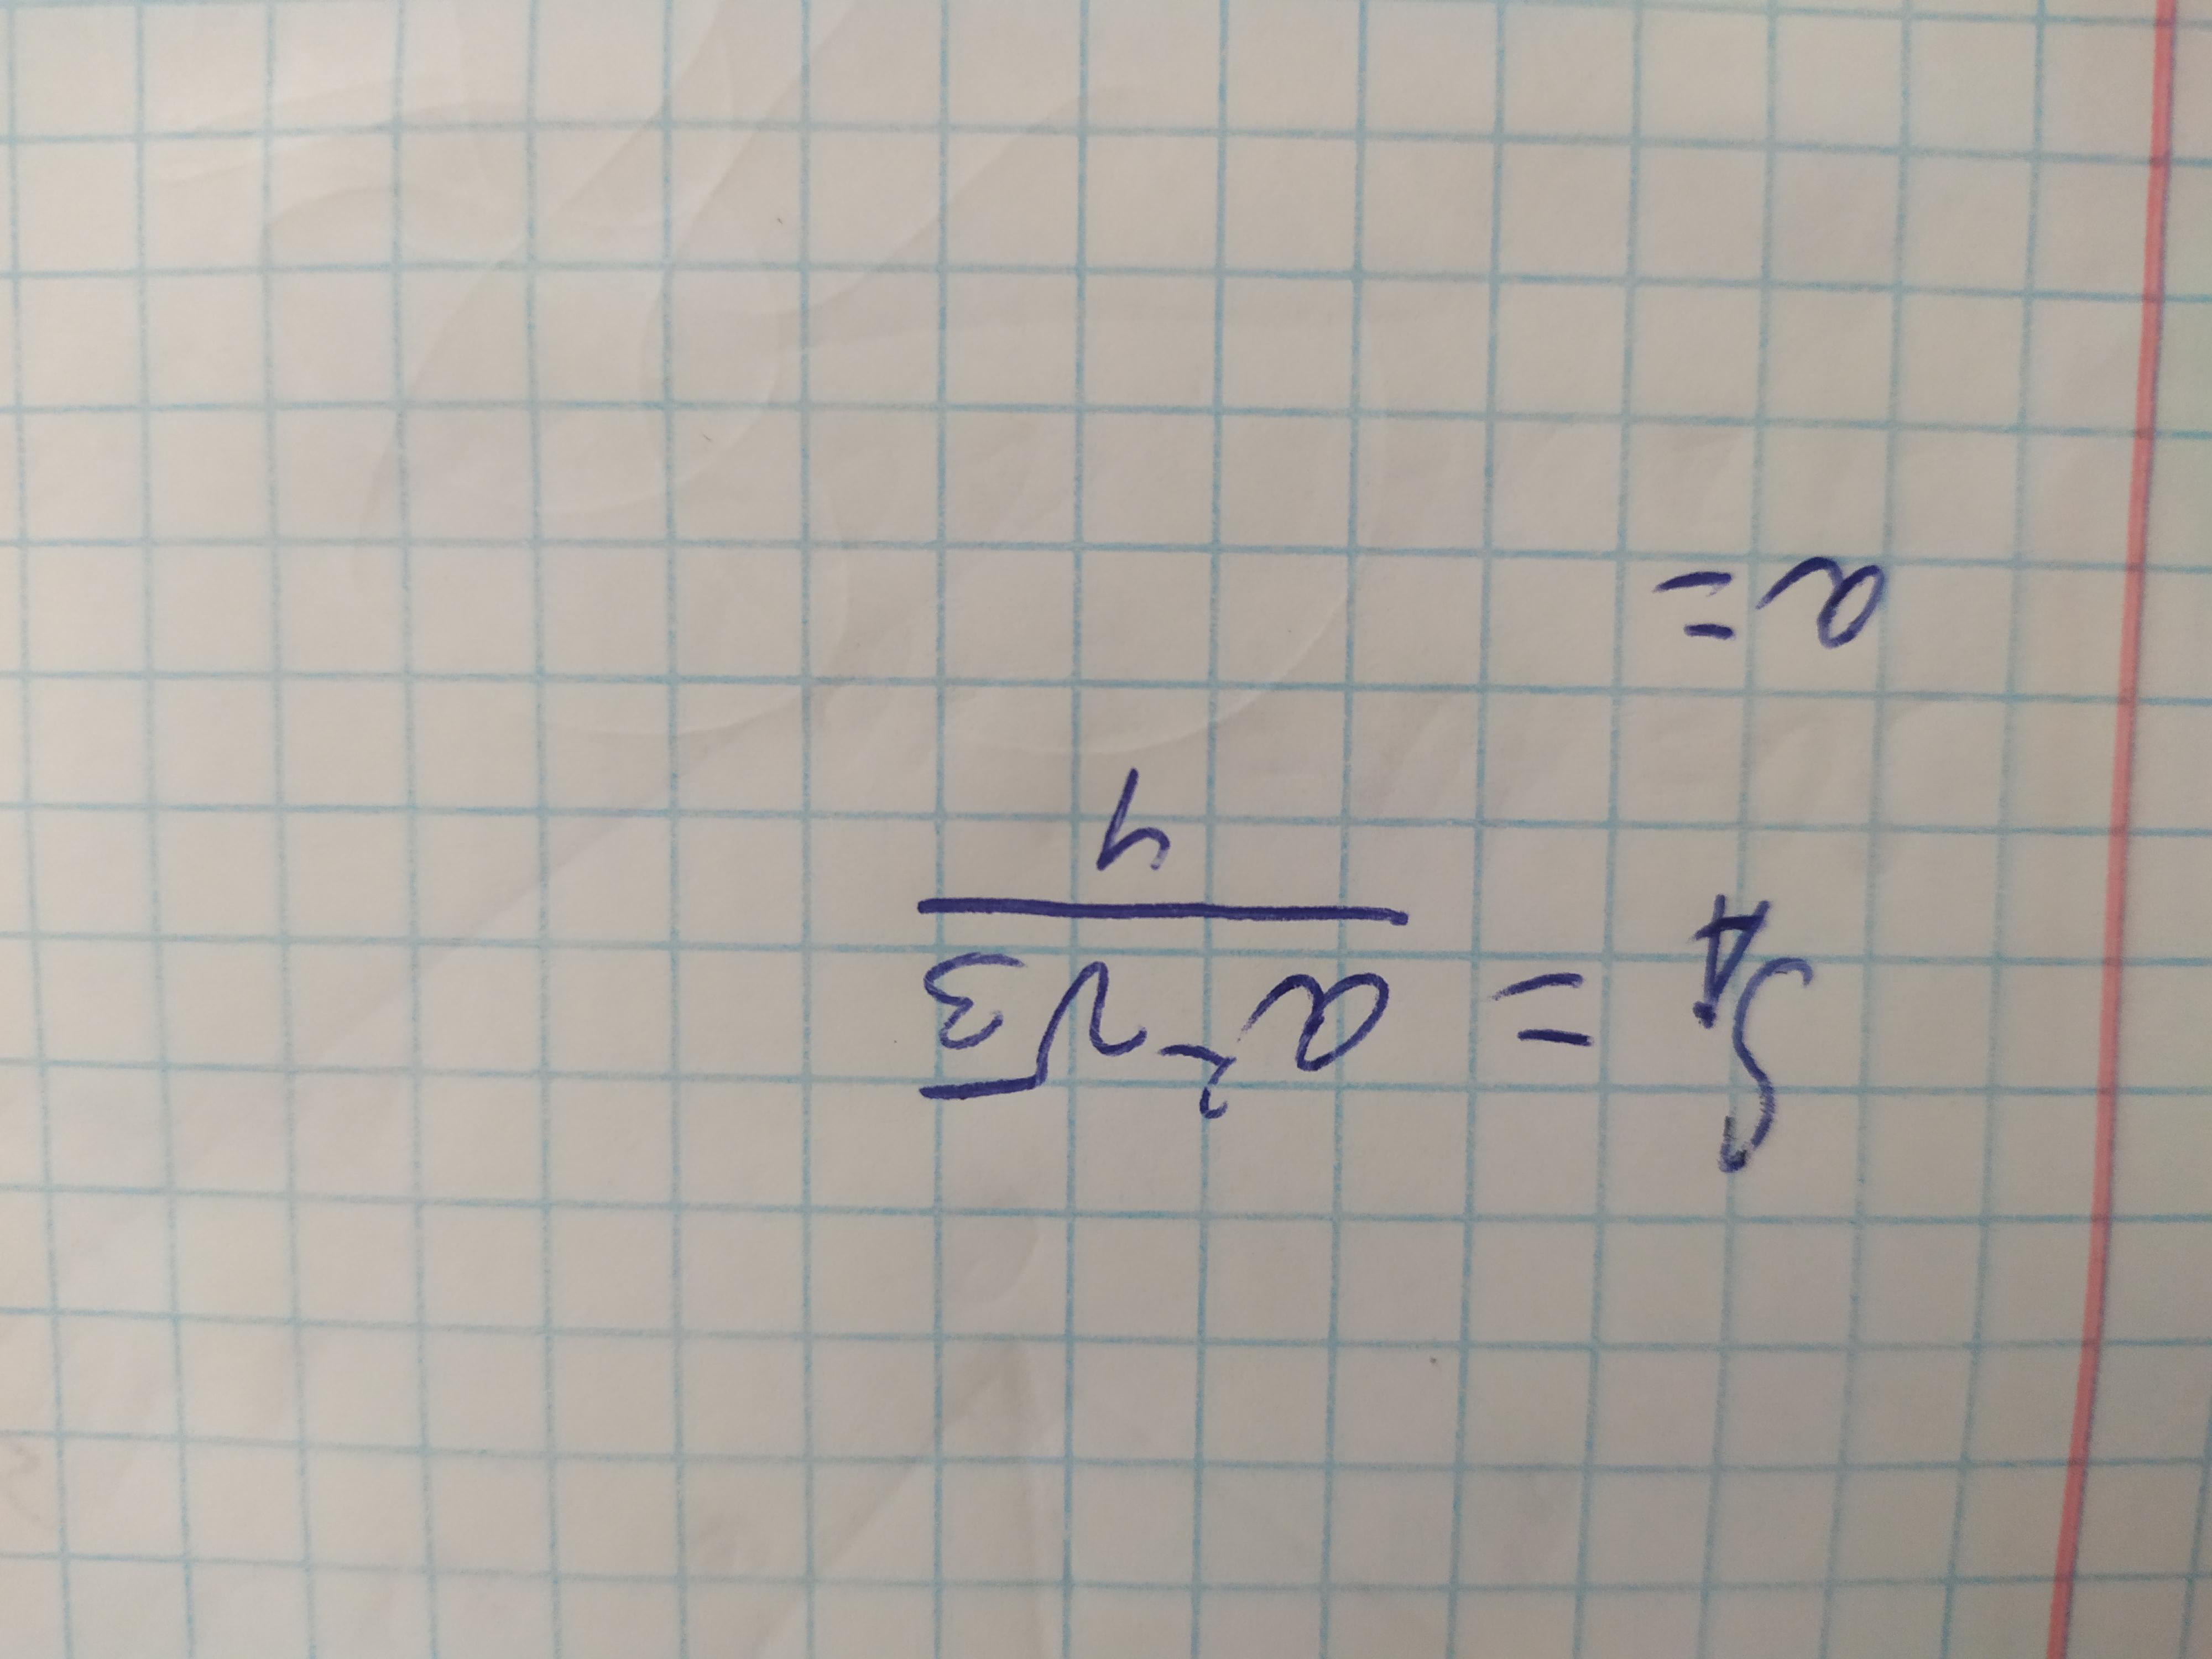 S△ = a²√3 / 4
a =